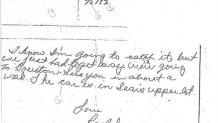 I know I'm going to catch it, but
we just had to get away. We're going
to Houston. See you in about a
week. The car is in Sears upper lot
Love